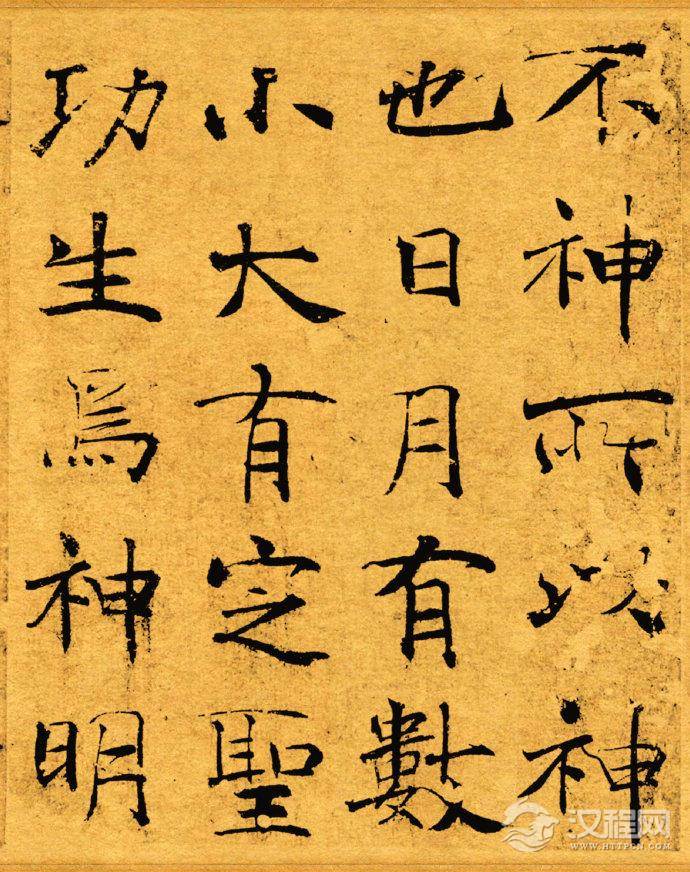 不神所以神
也日月有數
小大有定聖
功生焉神明
汉程网
WWW.HTTPCN.COM